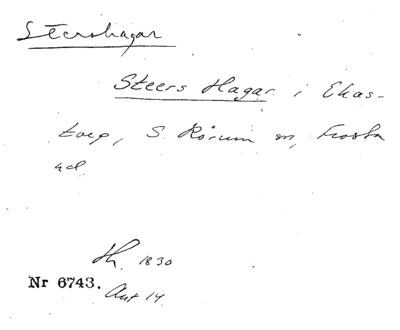 Steershagar
Steers Hagar i Ekas-
torp, S. Rörum sn, Frosta
hd
Th. 1830
Nr 6743. Ant 14.